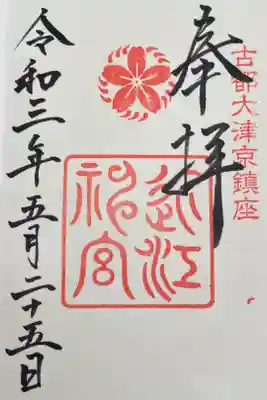 古都大津京鎮座
奉拝
近江
神宮
令和三年五月二十五日